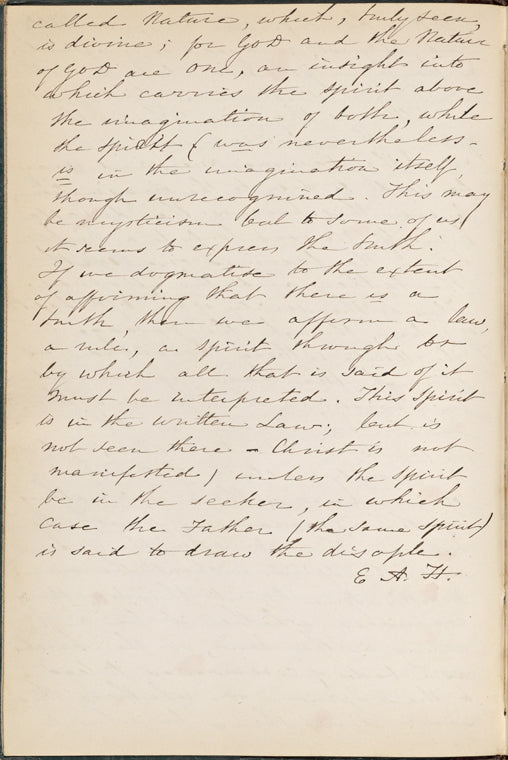 called Nature, which, truly seen,
is divine; for God and the Nature
of God are one, an insight into
which carries the spirit above
the imagination of both, while
the spirit (was nevertheless -
is in the imagination itself,
though unrecognined. This may
be mysticism but to some of us
it seems to express the truth.
If we dogmatise to the extent
of affirming that there is a
truth, then we affirm a law,
a rule, a spirit through or
by which all that is said of it
must be interpreted. This spirit
is in the written Law; but is
not seen there - Christ is not
manifested) unless the spirit
be in the seeker, in which
case the Father (the same spirit)
is said to draw the disciple.
E A. H.